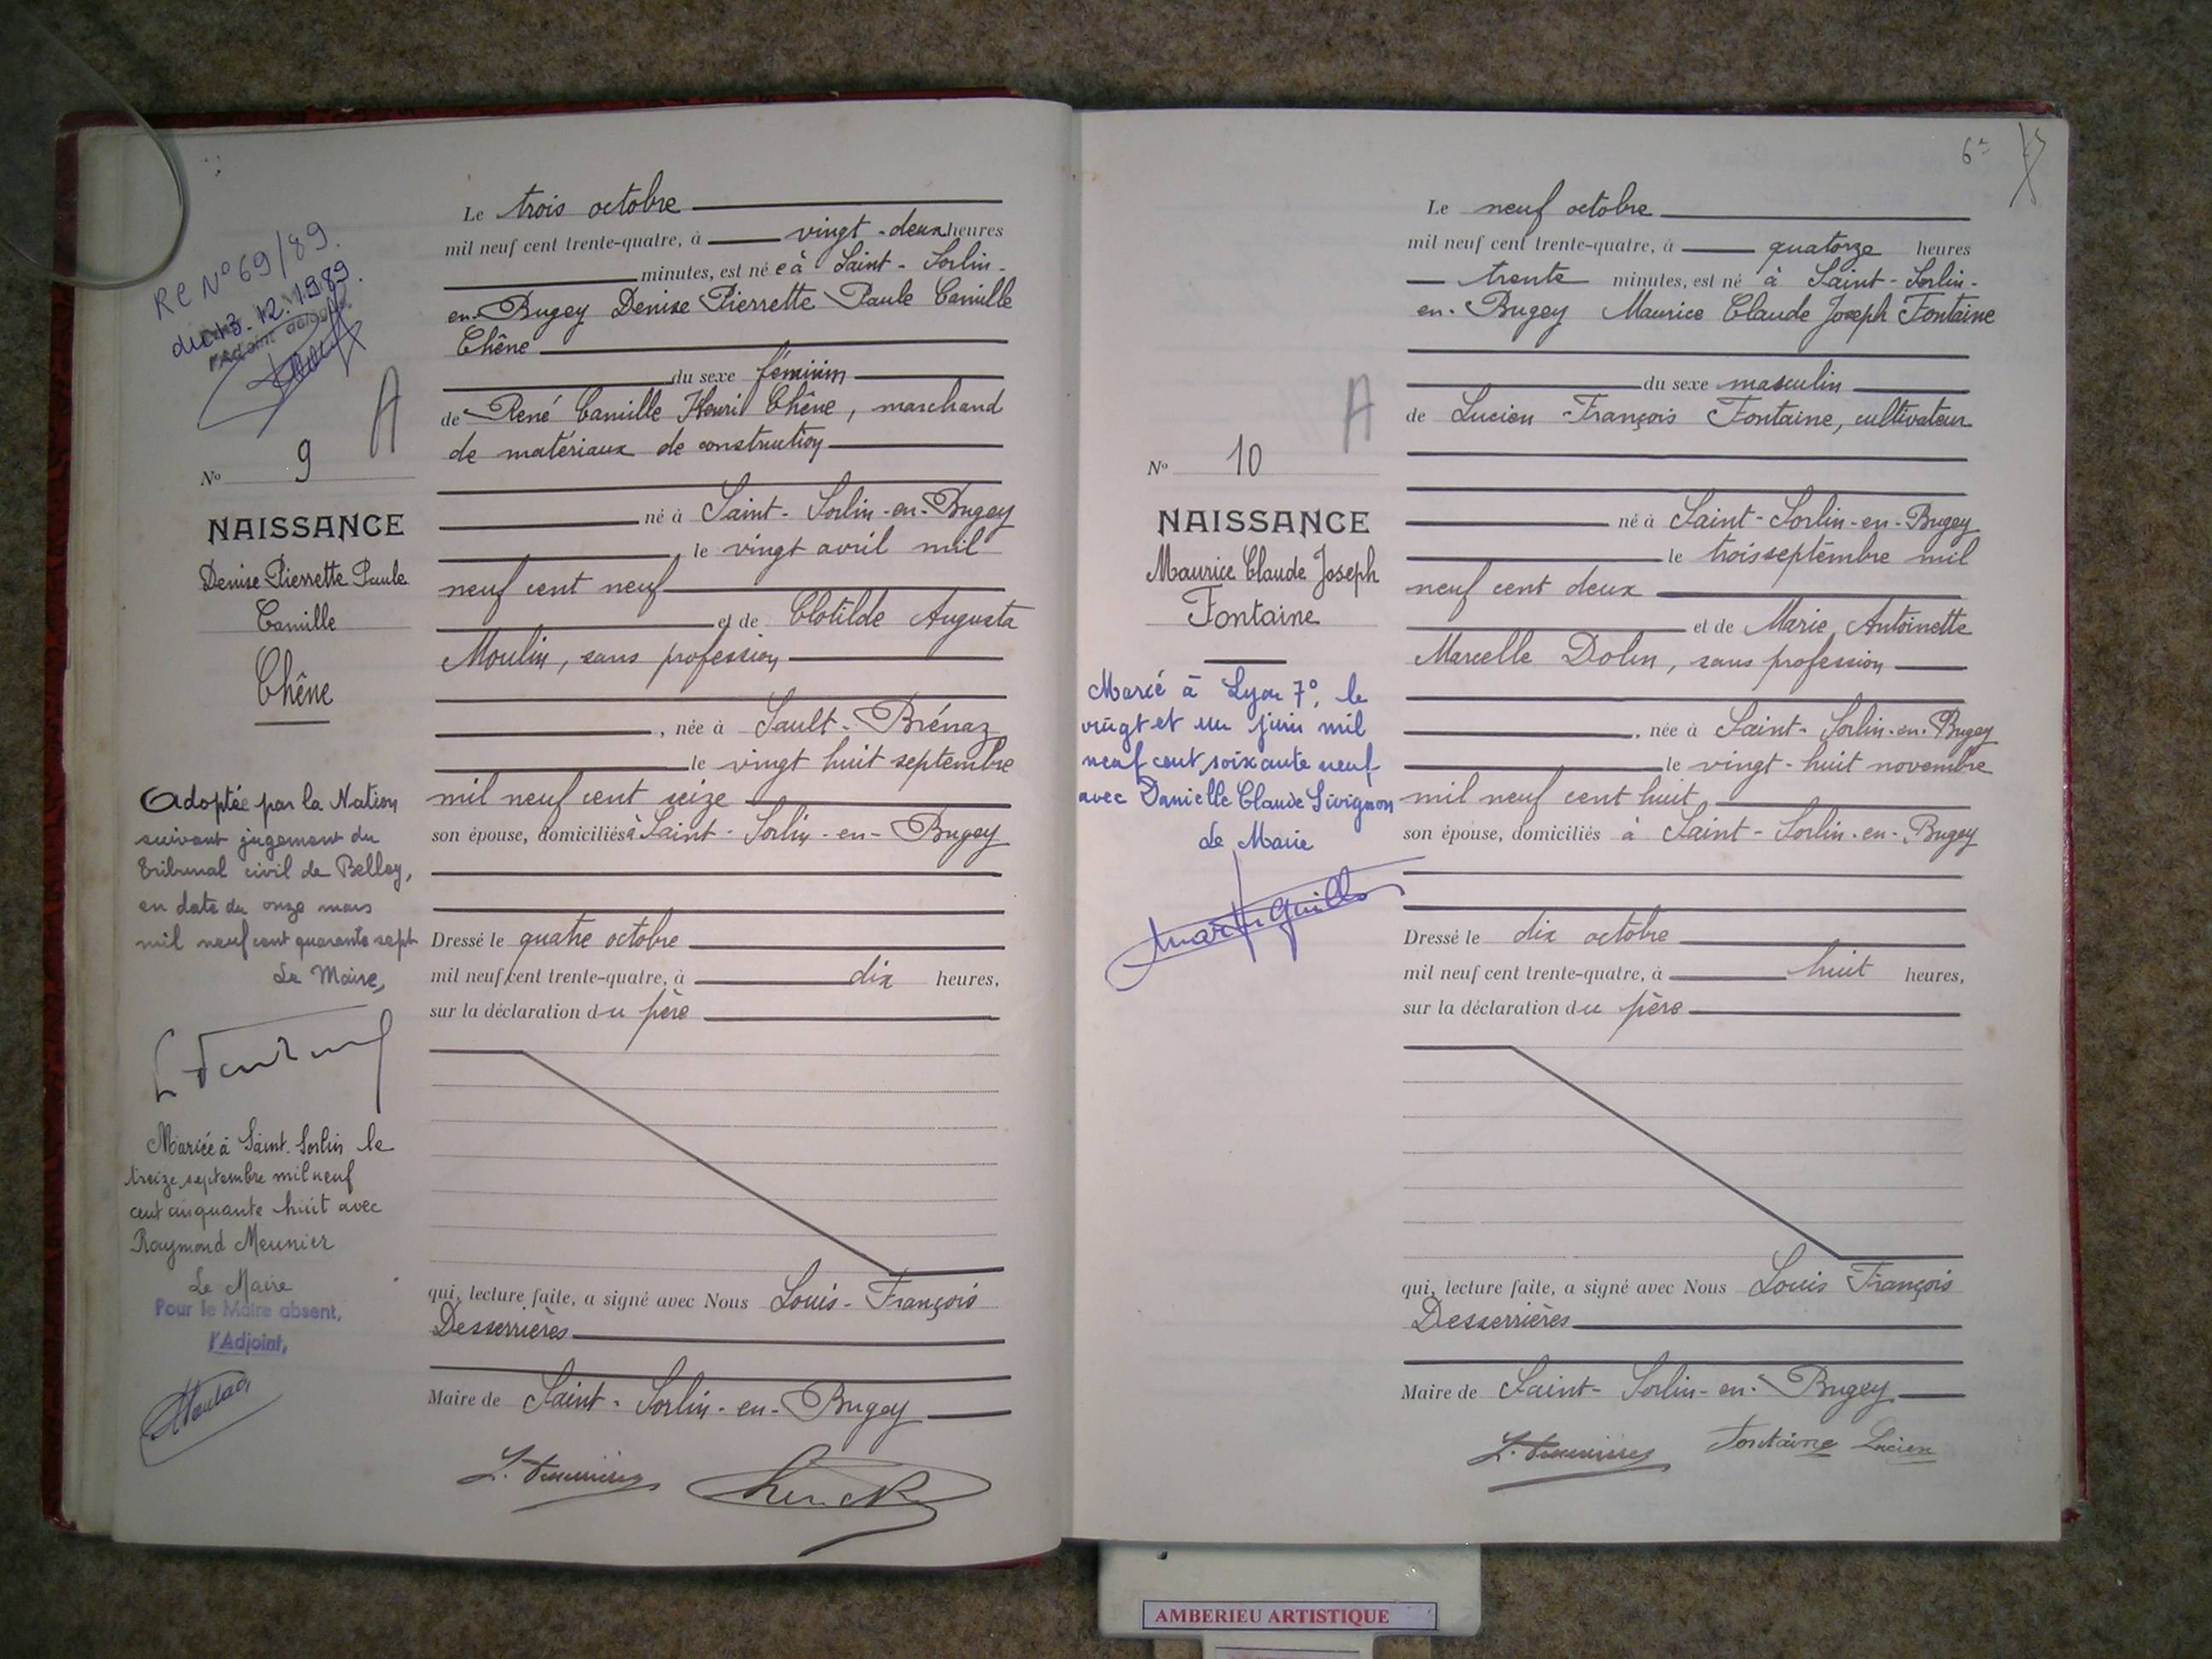 RC N° 69/89.
du 13.12.1989.
l'Adjoint délégué
A
N° 9
NAISSANCE
Denise Pierrette Paule
Camille
Chêne
Adoptée par la Nation
suivant jugement du
Tribunal civil de Belley,
en date du onze mars
mil neuf cent quarante sept
Le Maire,
Mariée à Saint-Sorlin le
treize septembre mil neuf
cent cinquante huit avec
Raymond Meunier
Le Maire
Pour le Maire absent,
l'Adjoint,
Le trois octobre
mil neuf cent trente-quatre, à vingt-deux heures
minutes, est née à Saint-Sorlin-
en-Bugey Denise Pierrette Paule Camille
Chêne
du sexe féminin
de René Camille Henri Chêne, marchand
de matériaux de construction
né à Saint-Sorlin-en-Bugey
le vingt avril mil
neuf cent neuf
et de Clotilde Augusta
Moulin, sans profession
, née à Sault-Brénaz
le vingt huit septembre
mil neuf cent seize
son épouse, domiciliés à Saint-Sorlin-en-Bugey
Dressé le quatre octobre
mil neuf cent trente-quatre, à dix heures,
sur la déclaration du père
qui, lecture faite, a signé avec Nous Louis-François
Desserrières
Maire de Saint-Sorlin-en-Bugey
L. Desserrières
6
A
N° 10
NAISSANCE
Maurice Claude Joseph
Fontaine
Marié à Lyon 7°, le
vingt et un juin mil
neuf cent soixante neuf
avec Danielle Claude Sivignon
Le Maire
Le neuf octobre
mil neuf cent trente-quatre, à quatorze heures
trente minutes, est né à Saint-Sorlin-
en-Bugey Maurice Claude Joseph Fontaine
du sexe masculin
de Lucien François Fontaine, cultivateur
né à Saint-Sorlin-en-Bugey
le trois septembre mil
neuf cent deux
et de Marie Antoinette
Marcelle Dolin, sans profession
, née à Saint-Sorlin-en-Bugey
le vingt-huit novembre
mil neuf cent huit
son épouse, domiciliés à Saint-Sorlin-en-Bugey
Dressé le dix octobre
mil neuf cent trente-quatre, à huit heures,
sur la déclaration du père
qui, lecture faite, a signé avec Nous Louis François
Desserrières
Maire de Saint-Sorlin-en-Bugey
L. Desserrières Fontaine Lucien
AMBERIEU ARTISTIQUE